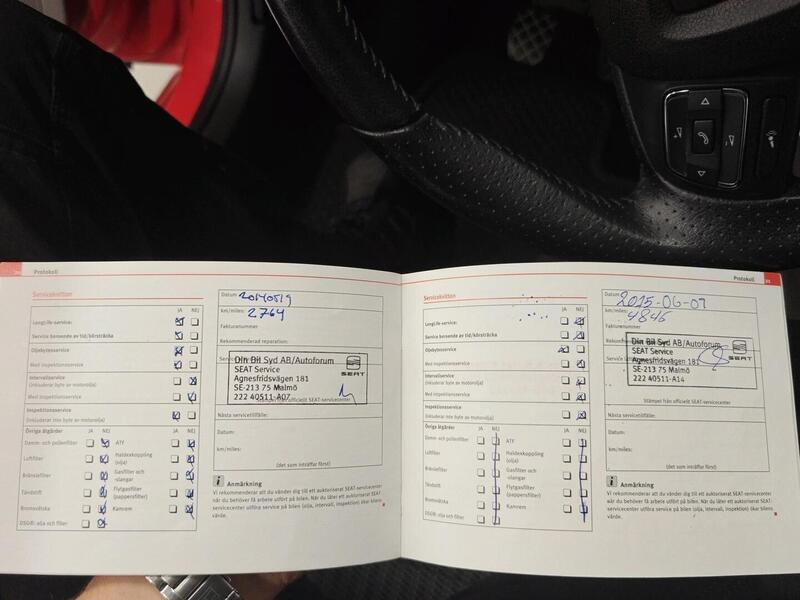 Protokoll
Servicekvitton
JA NEJ
LongLife-service:
Service beroende av tid/körsträcka
Oljebytesservice
Med inspektionsservice
Intervallservice
(inkluderar byte av motorolja)
Med inspektionsservice
Inspektionsservice
(inkluderar inte byte av motorolja)
Övriga åtgärder
JA NEJ JA NEJ
Damm- och pollenfilter ATF
Luftfilter Haldexkoppling
(olja)
Bränslefilter Gasfilter och
-slangar
Tändstift Flytgasfilter
(pappersfilter)
Bromsvätska Kamrem
DSG®: olja och filter
Datum 20140519
km/miles: 2764
Fakturanummer
Rekommenderad reparation:
Din Bil Syd AB/Autoforum
SEAT Service
Agnesfridsvägen 181
SE-213 75 Malmö
222 40511-A07
SEAT
Stämpel från officiellt SEAT-servicecenter
Nästa servicetillfälle:
Datum:
km/miles:
(det som inträffar först)
i Anmärkning
Vi rekommenderar att du vänder dig till ett auktoriserat SEAT-servicecenter
när du behöver få arbete utfört på bilen. När du låter ett auktoriserat SEAT-
servicecenter utföra service på bilen (olja, intervall, inspektion) ökar bilens
värde.
Protokoll
Servicekvitton
JA NEJ
LongLife-service:
Service beroende av tid/körsträcka
Oljebytesservice
Med inspektionsservice
Intervallservice
(inkluderar byte av motorolja)
Med inspektionsservice
Inspektionsservice
(inkluderar inte byte av motorolja)
Övriga åtgärder
JA NEJ JA NEJ
Damm- och pollenfilter ATF
Luftfilter Haldexkoppling
(olja)
Bränslefilter Gasfilter och
-slangar
Tändstift Flytgasfilter
(pappersfilter)
Bromsvätska Kamrem
DSG®: olja och filter
Datum: 2015-06-07
km/miles: 4846
Fakturanummer
Din Bil Syd AB/Autoforum
SEAT Service
Agnesfridsvägen 181
SE-213 75 Malmö
222 40511-A14
SEAT
Stämpel från officiellt SEAT-servicecenter
Nästa servicetillfälle:
Datum:
km/miles:
(det som inträffar först)
i Anmärkning
Vi rekommenderar att du vänder dig till ett auktoriserat SEAT-servicecenter
när du behöver få arbete utfört på bilen. När du låter ett auktoriserat SEAT-
servicecenter utföra service på bilen (olja, intervall, inspektion) ökar bilens
värde.